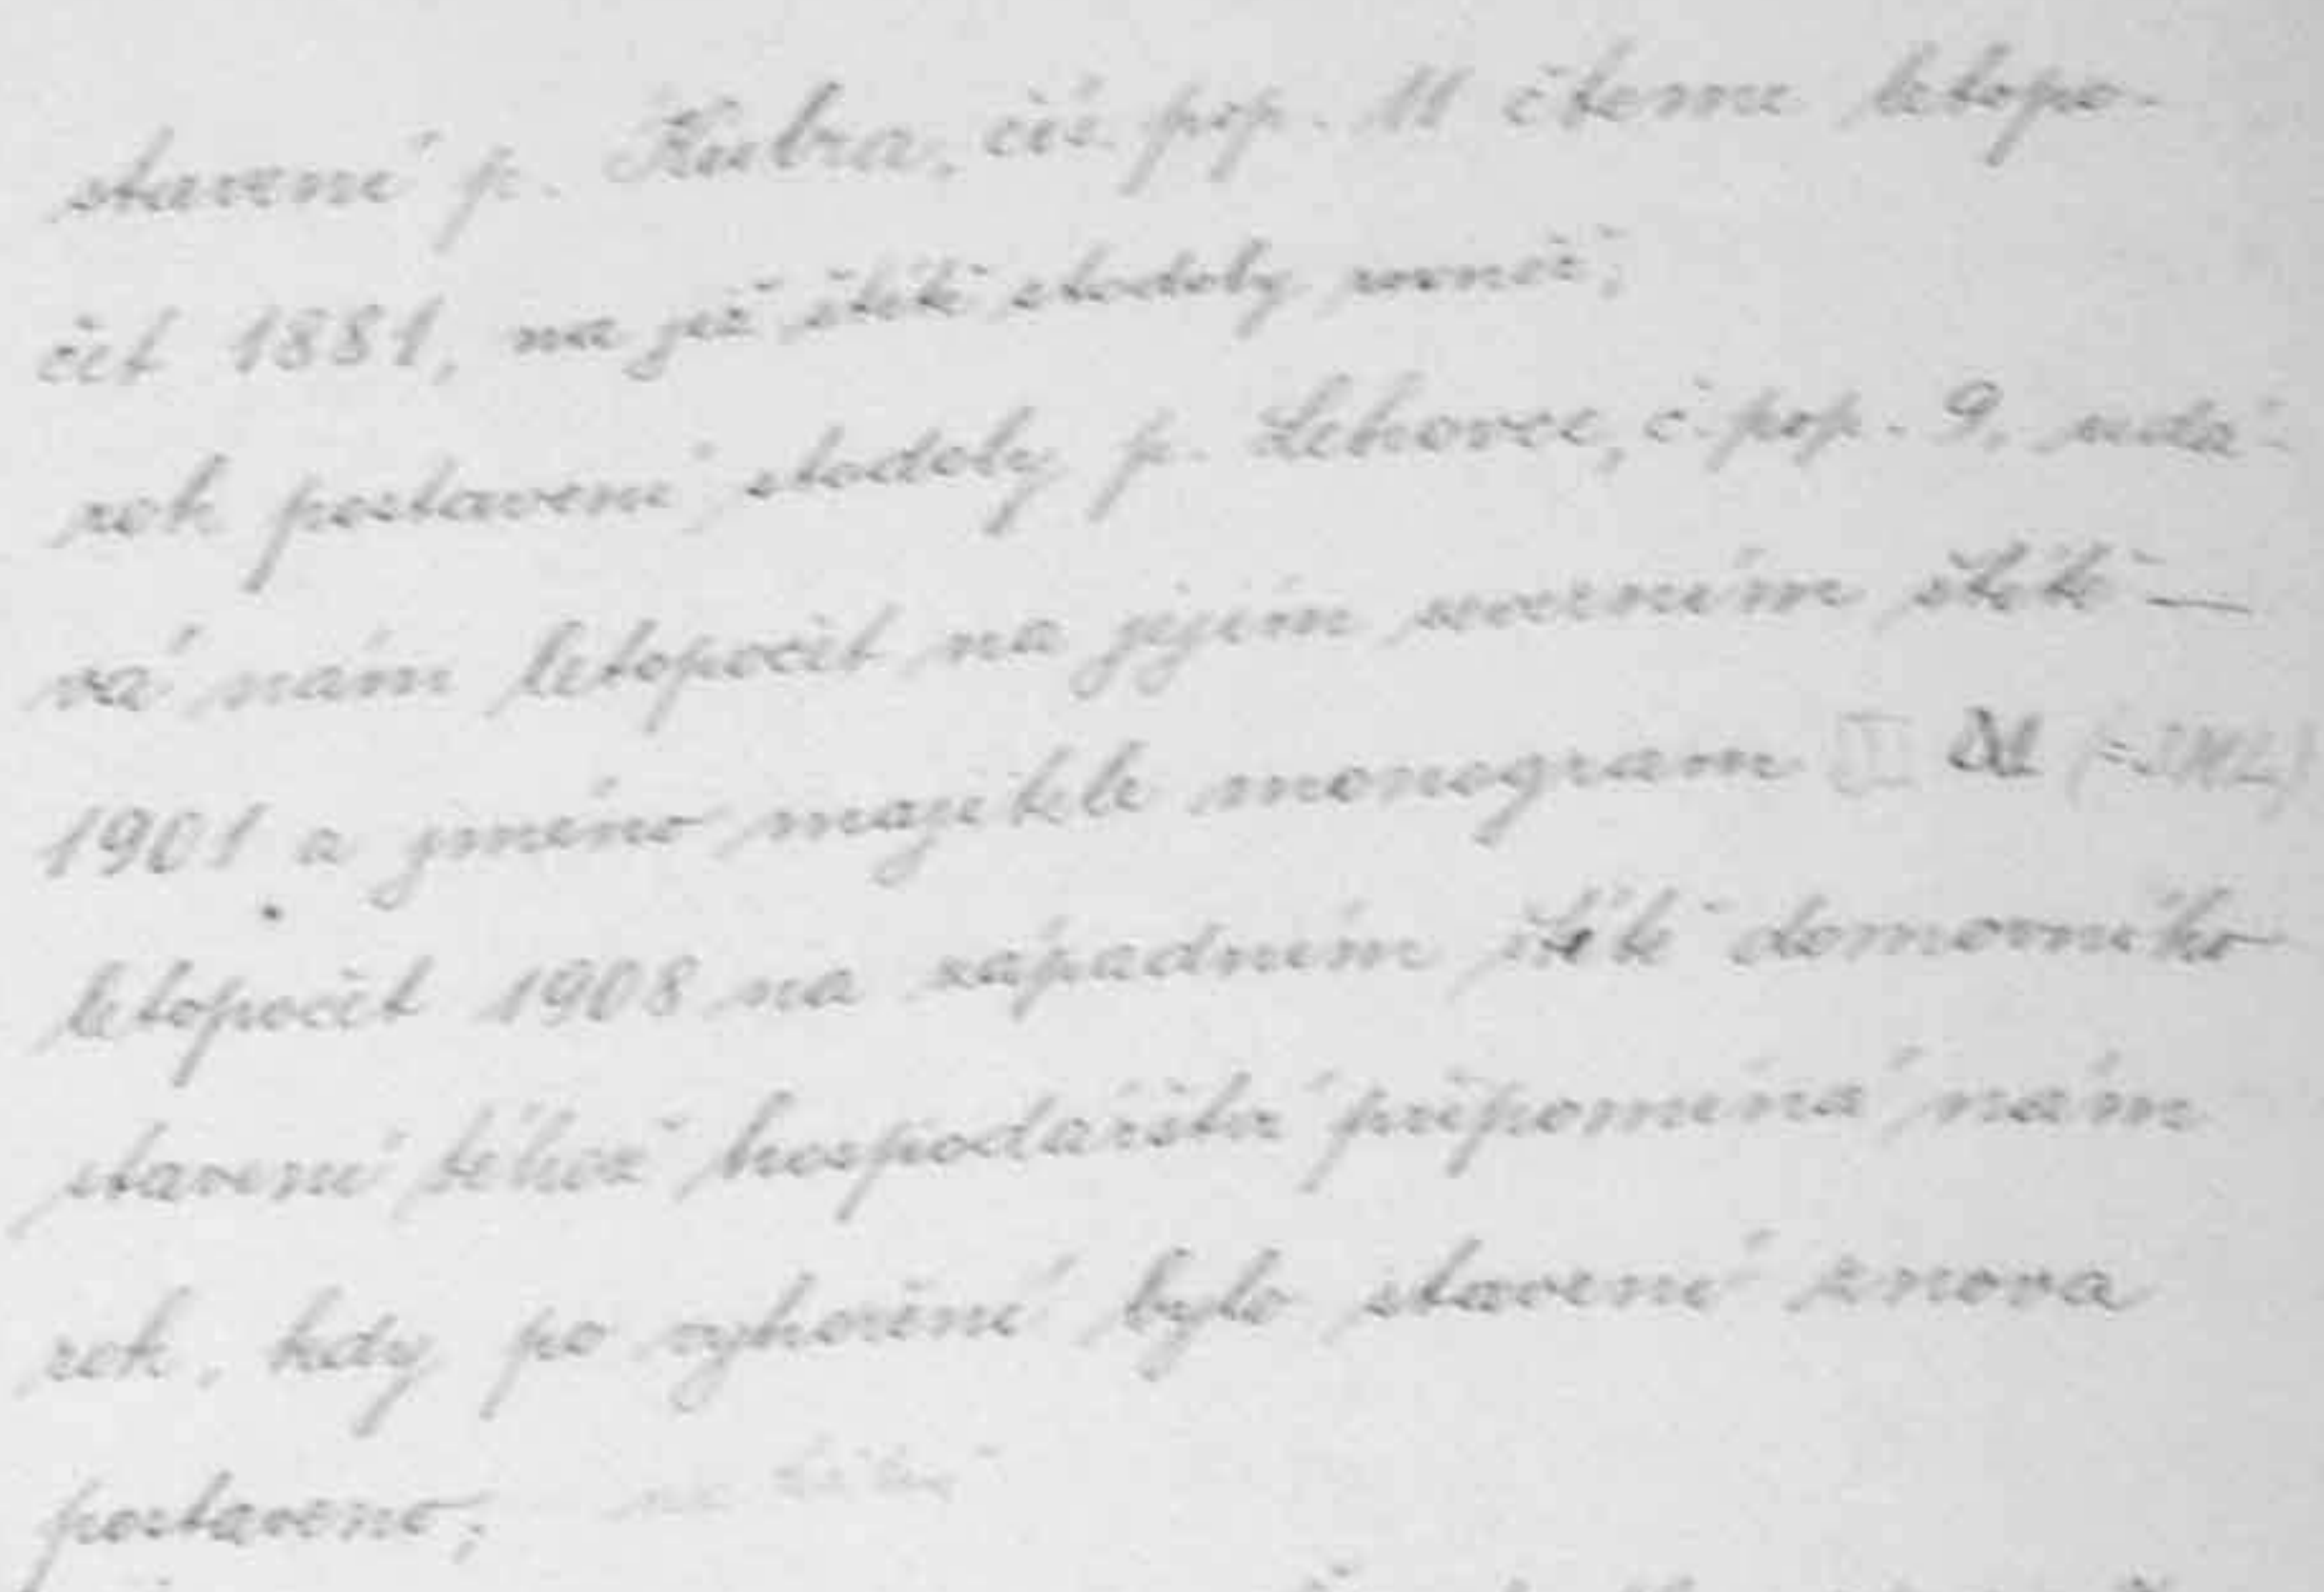 stavení p. Kubra, čís. pop. 11 čteme letopo-
čet 1881, na jež štítě stodoly rovněž;
rok postavení stodoly p. Lehovce, č. pop. 9, udá-
vá nám letopočet na jejím severním štítě —
1901 a jméno majitele monogram
letopočet 1908 na západním štítě domovního
stavení téhož hospodářství připomíná nám
rok, kdy po vyhoření bylo stavení znova
postaveno;